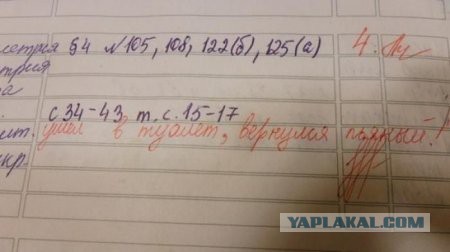 метрия §4 №105, 108, 122(б), 125(а) 4.
трия
а
с 34-43, т. с. 15-17
ушел в туалет, вернулся пьяный!
YAPLAKAL.COM